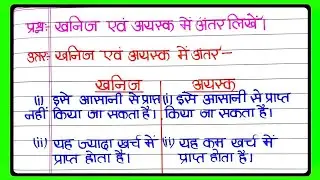 प्रश्न:- खनिज एवं अयस्क में अंतर लिखें।
उत्तर:- खनिज एवं अयस्क में अंतर -
खनिज अयस्क
(i) इसे आसानी से प्राप्त नहीं किया जा सकता है।
(ii) यह ज्यादा खर्च में प्राप्त होता है।
(i) इसे आसानी से प्राप्त किया जा सकता है।
(ii) यह कम खर्च में प्राप्त होता है।